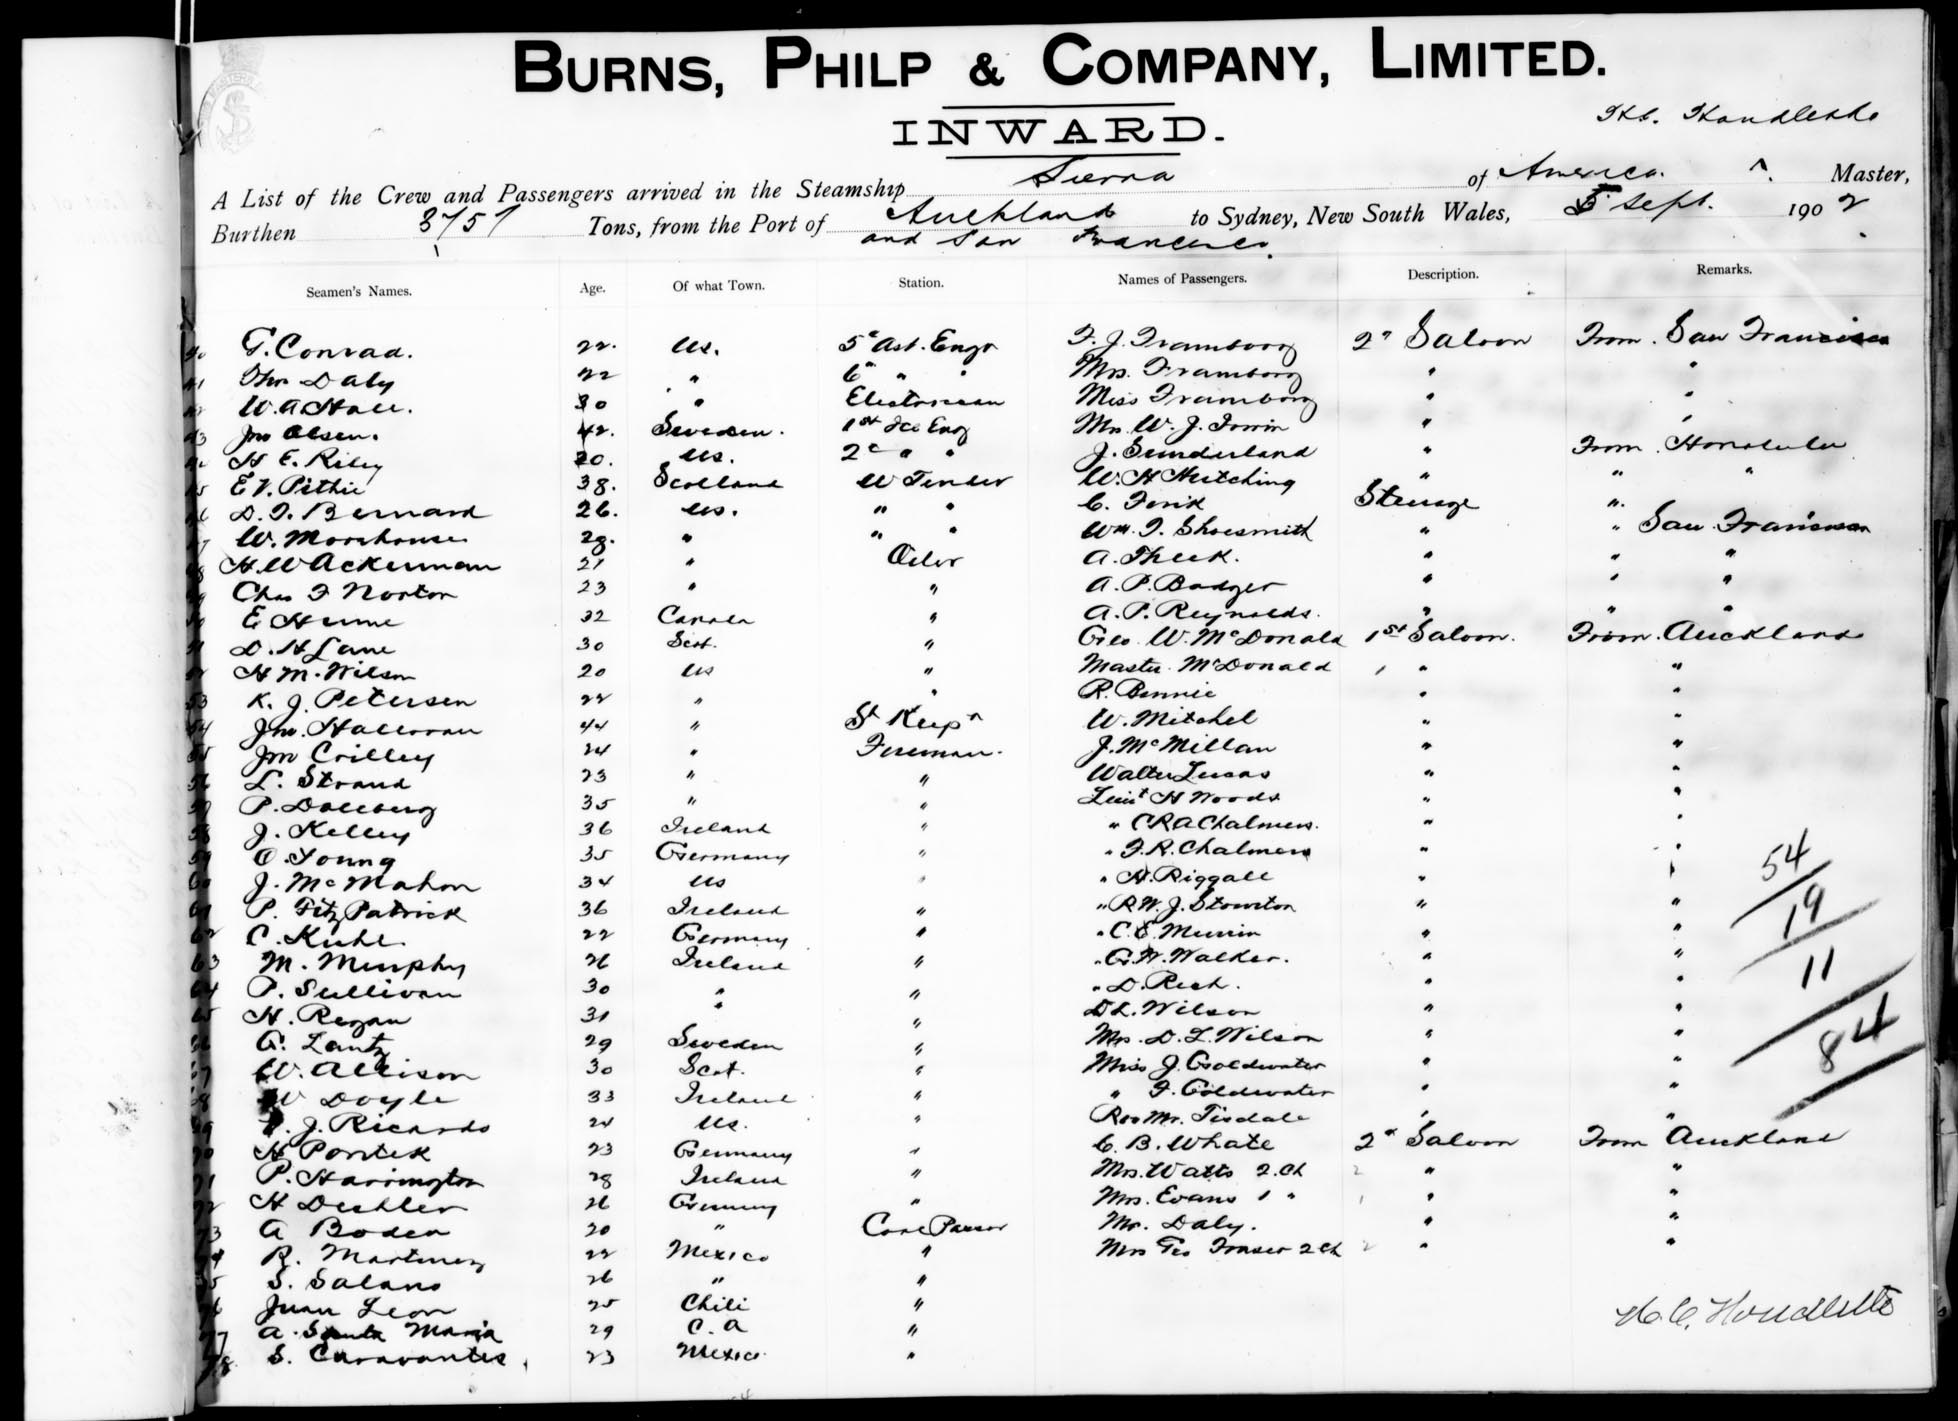 BURNS, PHILP & COMPANY, LIMITED.
INWARD.
A List of the Crew and Passengers arrived in the Steamship Sierra of America. Master,
Burthen 3757 Tons, from the Port of Auckland to Sydney, New South Wales, 5 Sept. 1902
and San Francisco.
Seamen's Names. Age. Of what Town. Station. Names of Passengers. Description. Remarks.
40 G. Conrad. 22. US. 5" Ast. Engr F. J. Framborg 2" Saloon From San Francisco
41 Thos Daly 22 " 6" " " Mrs. Framborg " "
42 W. A. Hall. 30 " Electrician Miss Framborg " "
43 Jno Olsen. 42. Sweden. 1st Ice Eng Mrs. W. J. Irwin " "
44 H E. Riley 20. US. 2" " " J. Sunderland " From Honolulu
45 E V. Pithie 38. Scotland W Tender W. H Hutching " " "
46 D. F. Bernard 26. US. " " C. Fink Steerage "
47 W. Moorhouse 28. " " " Wm. F. Shoesmith " " San Francisco
48 H. W Ackerman 21 " Oiler A. Theek. " " "
49 Chas F Norton 23 " " A. P. Badger " " "
50 E Hume 32 Canada " A. P. Reynolds. " " "
51 D. H Lane 30 Scot. " Geo W. McDonald 1st Saloon. From Auckland
52 H M. Wilson 20 US " Master McDonald 1 " "
53 K. J. Petersen 22 " " R. Bennie " "
54 Jno. Halloran 44 " St Keepr W. Mitchel " "
55 Jno Crilley 24 " Fireman. J. McMillan " "
56 L. Strand 23 " " Walter Lucas " "
57 P. Dalberg 35 " " Lieut H Woods " "
58 J. Kelley 36 Ireland " " C R A Chalmers. " "
59 O. Young 35 Germany " " F. R. Chalmers " "
60 J. McMahon 34 US " " H. Riggall " "
61 P. FitzPatrick 36 Ireland " " R W. J. Stourton " "
62 C. Kuhl. 22 Germany " " C. E. Murrin " "
63 M. Murphy 26 Ireland " " G. W. Walker. " "
64 P. Sullivan 30 " " " D. Rich. " "
65 H. Regan 31 " " D L. Wilson " "
66 G. Lantz 29 Sweden " Mrs. D. L. Wilson " "
67 W. Allison 30 Scot. " Miss J. Goldwater " "
68 W Doyle 33 Ireland " " F. Goldwater " "
69 J. Ricards 24 US. " Rev Mr. Tisdale " "
70 H Pontek 23 Germany " C. B. White 2" Saloon From Auckland
71 P. Harrington 28 Ireland " Mrs. Watts 2. Ch 2 " "
72 H Deckler 26 Germany " Mrs. Evans 1 " 1 " "
73 A Boden 20 " Coal Passer Mr. Daly. " "
74 R. Martinez 22 Mexico " Mrs Geo Fraser 2 Ch 2 " "
75 S. Salano 26 " "
76 Juan Leon 25 Chili "
77 A. Santa Maria 29 C. A "
78 S. Caravantes 23 Mexico "
54
19
11
84
H. C. Houdlette